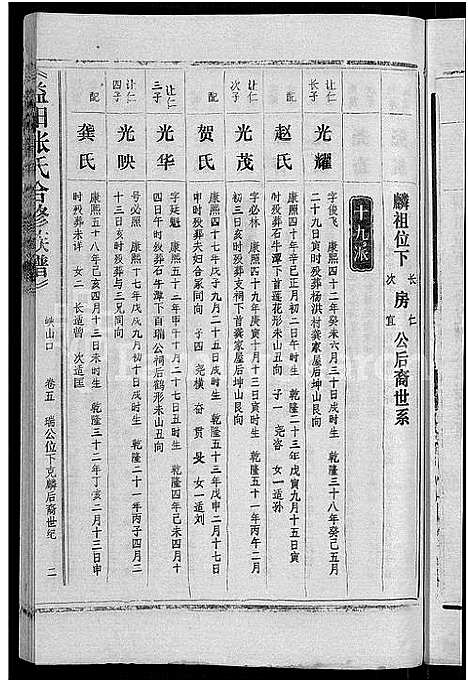 麟祖位下 长 仁 房 次 宜 公后裔世系
十九派
让仁长子 光耀 字俊飞 康熙四十二年癸未六月三十日戌时生 乾隆三十八年癸巳五月
二十九日寅时殁葬杨洪村龚家屋后坤山艮向
配 赵氏 康熙四十年辛巳正月初二日午时生 乾隆二十三年戊寅九月十五日寅
时殁葬石牛潭下首莲花形未山丑向 子一 尧咨 女一适孙
让仁次子 光茂 字必林 康熙四十九年庚寅十月十三日寅时生 乾隆五十一年丙午二月
初三日亥时殁葬支祠下首龚家屋后坤山艮向
配 贺氏 康熙五十七年戊戌九月二十日戌时生 乾隆五十三年戊申二月十七日
申时殁葬夫妇合冢同向 子四 尧横 奋 贯 旻 女一适刘
让仁三子 光华 字廷魁 康熙五十二年甲午十月二十七日丑时生 乾隆四年己未四月十
四日午时殁葬石牛潭下首瑞公祠后鹤形未山丑向
让仁四子 光映 号必照 康熙十七年戊戌九月初十日戌时生 乾隆二十一年丙子四月二
十三日亥时殁葬与三兄同向
配 龚氏 康熙五十八年己亥三月十三日未时生 乾隆三十二年丁亥二月十三日申
时殁葬未详 女二 长适曾 次适匡
益阳张氏合修族谱
峡山口 卷五 瑞公位下克麟后裔世纪 二